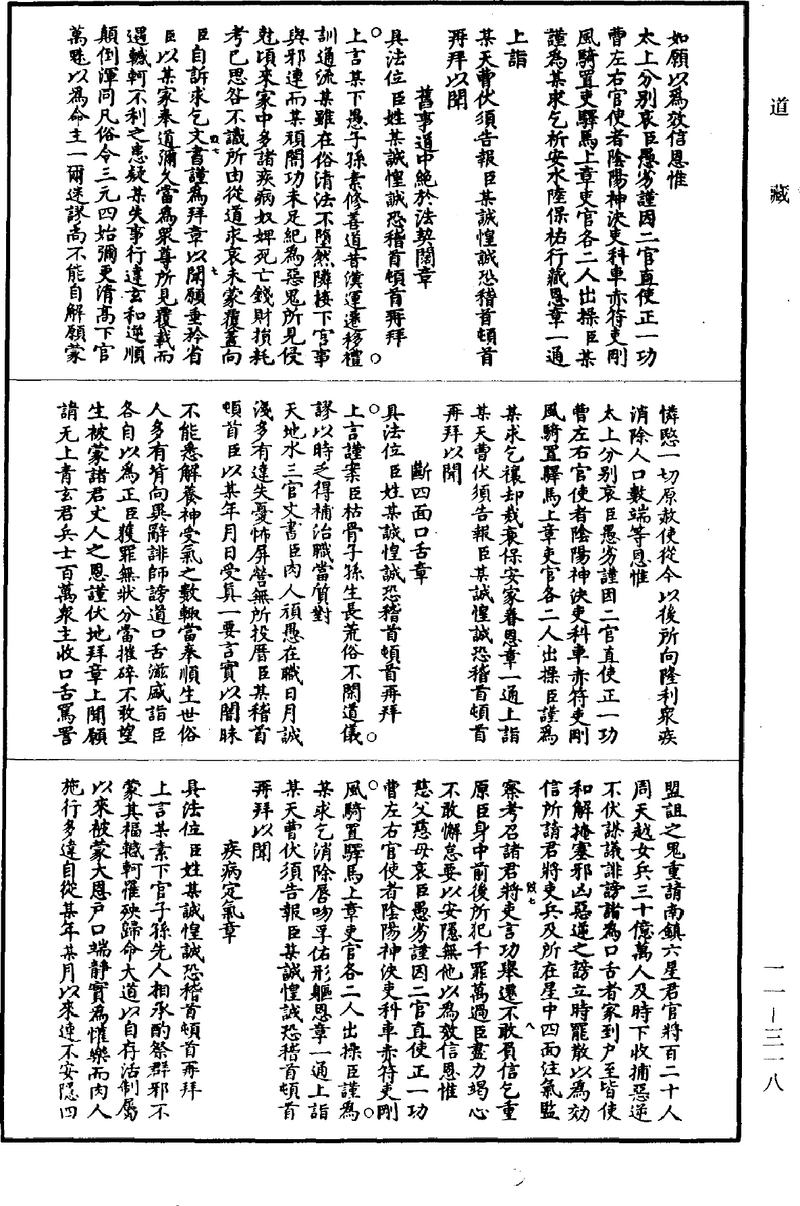 道藏
如願以為效信恩惟
太上分別哀臣愚劣謹因二官直使正一功
曹左右官使者陰陽神決吏科車赤符吏剛
風騎置吏驛馬上章吏官各二人出操臣某
謹為某求乞祈安水陸保祐行藏恩章一通
上詣
某天曹伏須告報臣某誠惶誠恐稽首頓首
再拜以聞
舊事道中絶於法契闊章
具法位臣姓某誠惶誠恐稽首頓首再拜
上言某下愚子孫素修善道昔漢運遷移禮
訓通流某雖在俗清法不墮然隣接下官事
與邪連而某頑闇功未足紀為惡鬼所見侵
尅頃來家中多諸疾病奴婢死亡錢財損耗
考已思咎不識所由從道求哀未蒙覆蓋向
臣自訴求乞文書謹為拜章以聞願垂矜省
臣以某家奉道彌久當為眾尊所見覆載而
遇轗軻不利之恚疑某失事行違玄和逆順
顛倒渾同凡俗令三元四始彌更清高下官
萬魅以為命主一爾迷謬尚不能自解願蒙
憐愍一切原赦使從今以後所向隆利眾疾
消除人口數端等恩惟
太上分別哀臣愚劣謹因二官直使正一功
曹左右官使者陰陽神決吏科車赤符吏剛
風騎置驛馬上章吏官各二人出操臣謹為
某求乞禳却災衰保安家眷恩章一通上詣
某天曹伏須告報臣某誠惶誠恐稽首頓首
再拜以聞
斷四面口舌章
具法位臣姓某誠惶誠恐稽首頓首再拜
上言謹案臣枯骨子孫生長荒俗不閑道儀
謬以時乏得補治職當質對
天地水三官文書臣肉人頑愚在職日月誠
淺多有違失憂怖屏營無所投厝臣某稽首
頓首臣以某年月日受真一要言實以闇昧
不能悉解養神受氣之數輙當奉順生世俗
人多有背向異辭誹師謗道口舌滋盛詣臣
各自以為正臣獲罪無狀分當摧碎不敢望
生被蒙諸君丈人之恩謹伏地拜章上聞願
請无上青玄君兵士百萬眾主收口舌罵詈
盟詛之鬼重請南鎮六星君官將百二十人
周天越女兵三十億萬人及時下收捕惡逆
不伏謀議誹謗諸為口舌者家到戶至皆使
和解掩塞邪凶惡逆之謗立時罷散以為効
信所請君將吏兵及所在星中四面注氣監
察考召諸君將吏言功舉遷不敢負信乞重
原臣身中前後所犯千罪萬過臣盡力竭心
不敢懈怠要以安隱無他以為效信恩惟
慈父慈母哀臣愚劣謹因二官直使正一功
曹左右官使者陰陽神決吏科車赤符吏剛
風騎置驛馬上章吏官各二人出操臣謹為
某求乞消除唇吻孚佑形軀恩章一通上詣
某天曹伏須告報臣某誠惶誠恐稽首頓首
再拜以聞
疾病定氣章
具法位臣姓某誠惶誠恐稽首頓首再拜
上言某素下官子孫先人相承酌祭群邪不
蒙其福轗軻罹殃歸命大道以自存活制屬
以來被蒙大恩戶口端靜實為懽樂而肉人
施行多違自從某年某月以來連不安隱四
一一－三一八